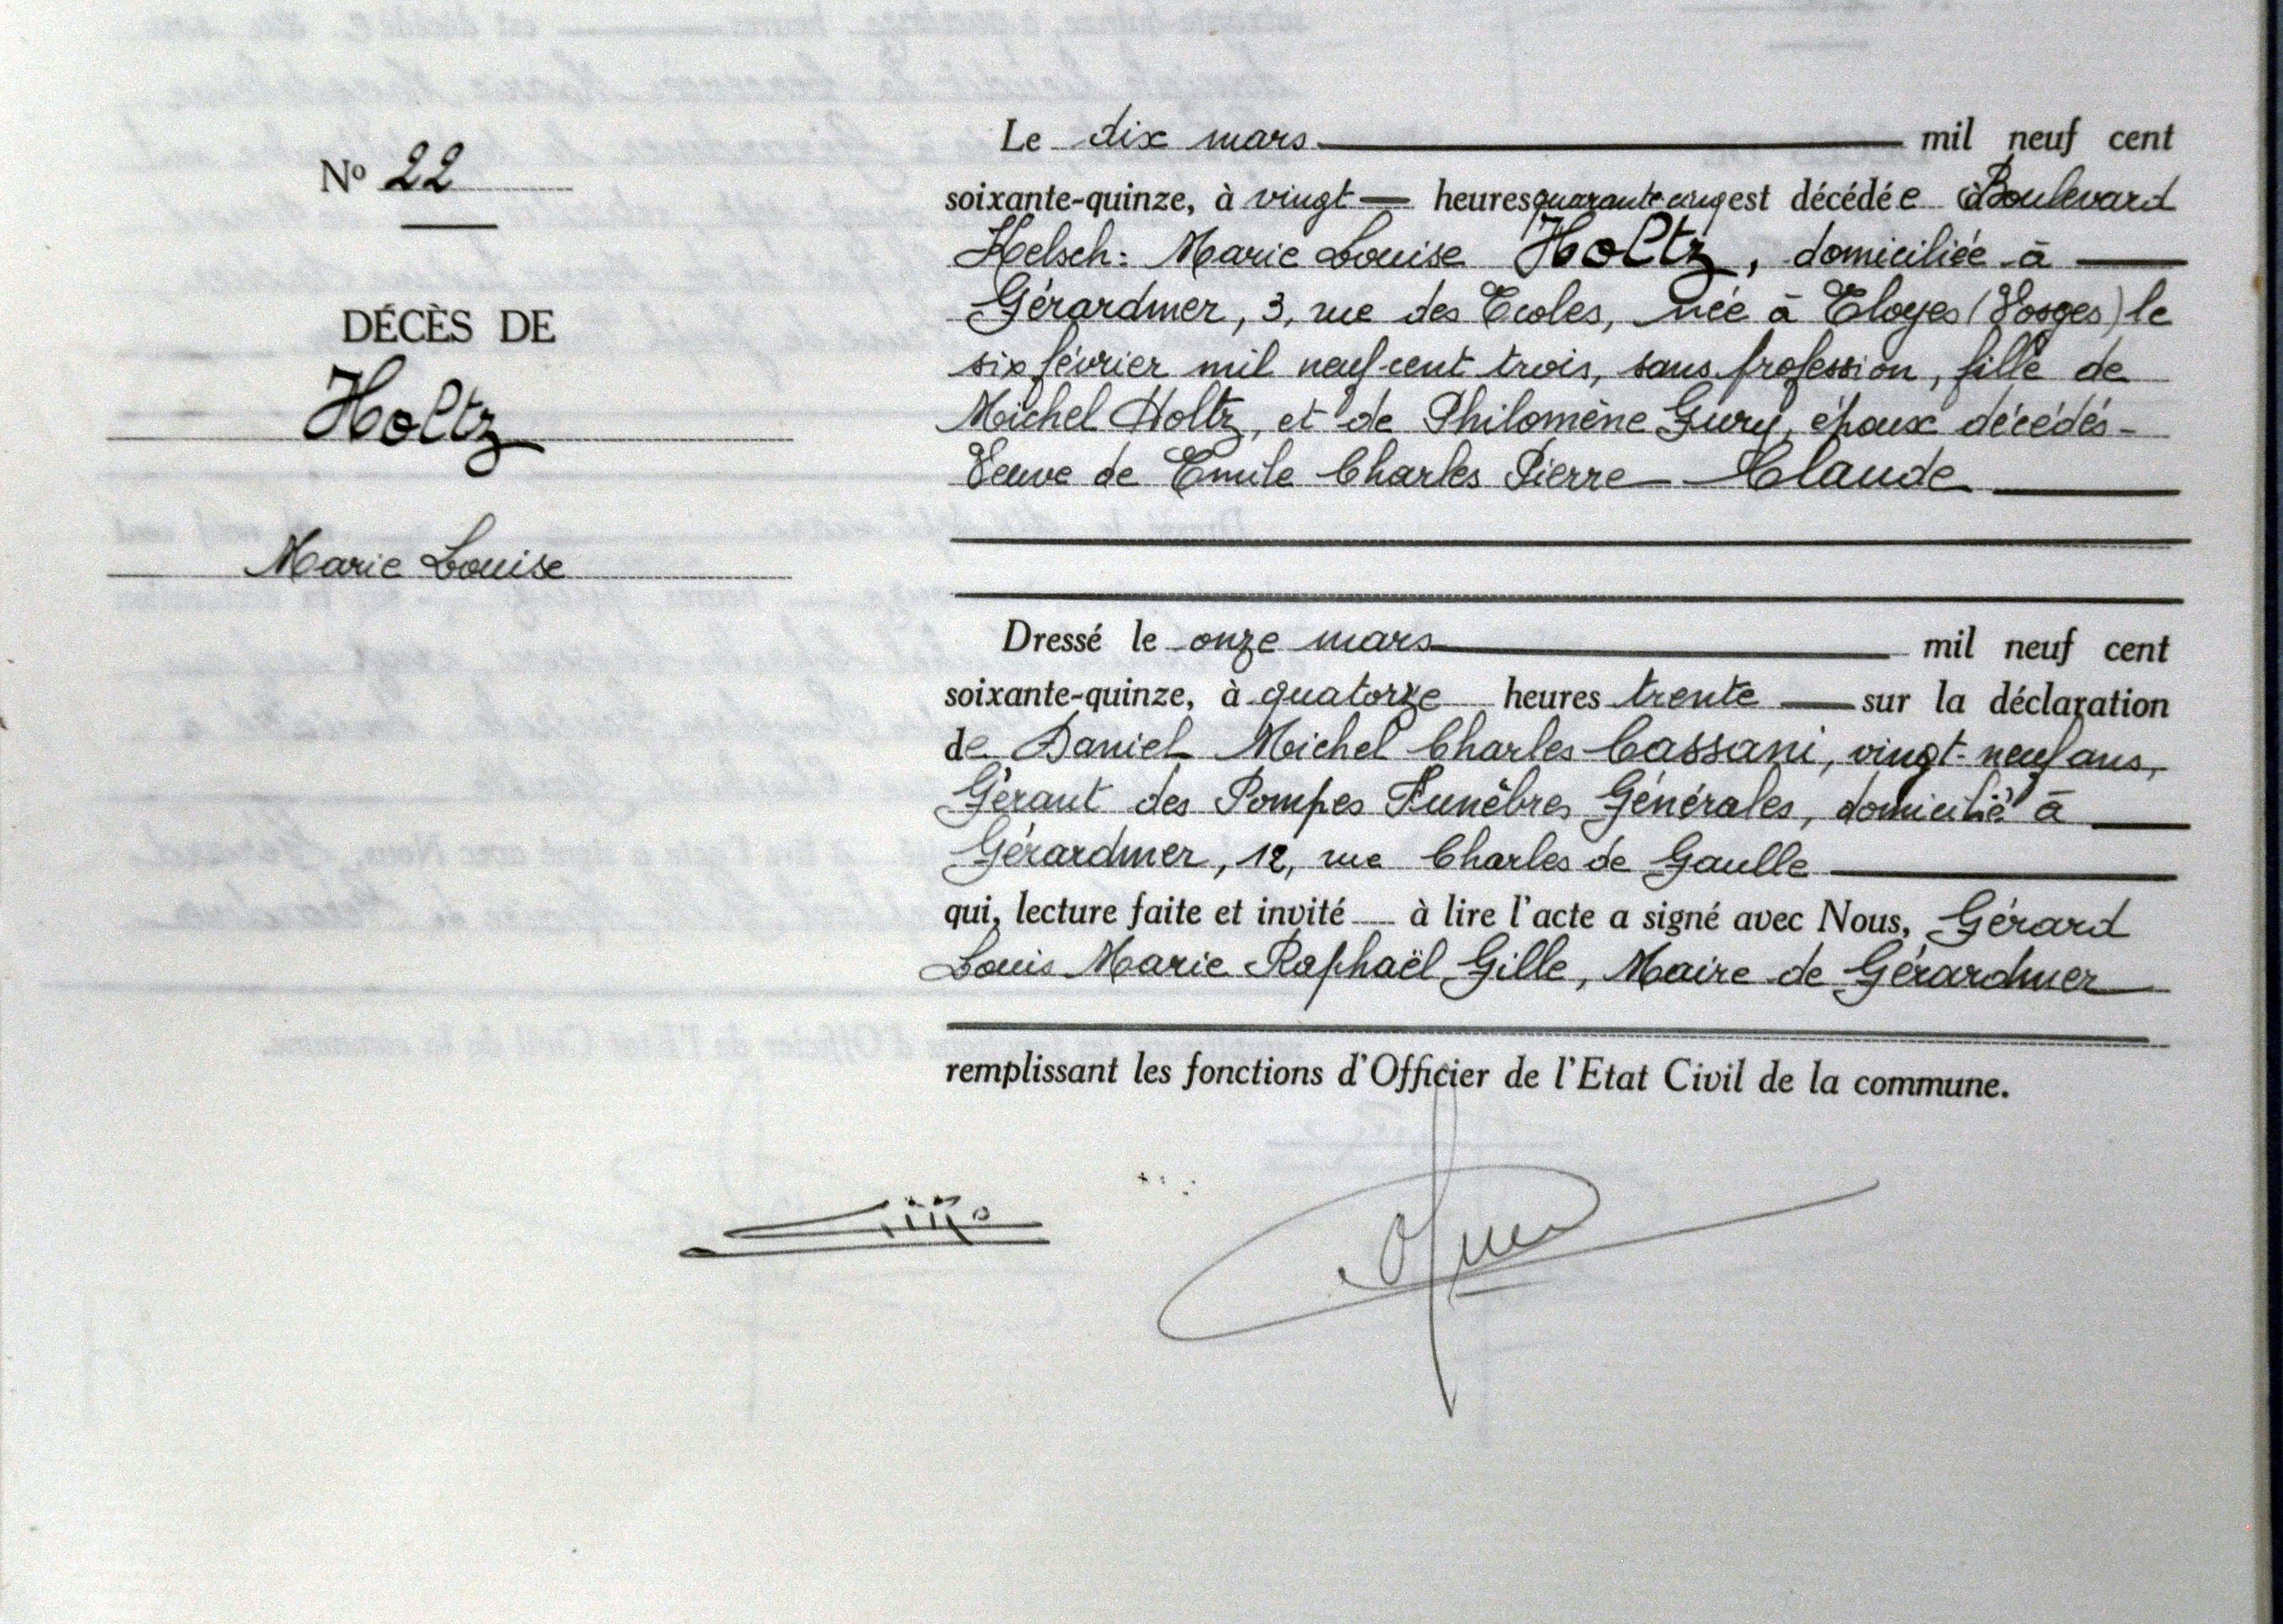 Nº 22
DÉCÈS DE
Holtz
Marie Louise
Le dix mars mil neuf cent
soixante-quinze, à vingt — heures quarante cinq est décédée à Boulevard
Kelsch: Marie Louise Holtz, domiciliée à
Gérardmer, 3, rue des Ecoles, née à Eloyes (Vosges) le
six février mil neuf cent trois, sans profession, fille de
Michel Holtz, et de Philomène Gury, époux décédés -
Veuve de Emile Charles Pierre Claude
Dressé le onze mars mil neuf cent
soixante-quinze, à quatorze heures trente — sur la déclaration
de Daniel Michel Charles Cassani, vingt-neuf ans,
Gérant des Pompes Funèbres Générales, domicilié à
Gérardmer, 12, rue Charles de Gaulle
qui, lecture faite et invité — à lire l'acte a signé avec Nous, Gérard
Louis Marie Raphaël Gille, Maire de Gérardmer
remplissant les fonctions d'Officier de l'Etat Civil de la commune.